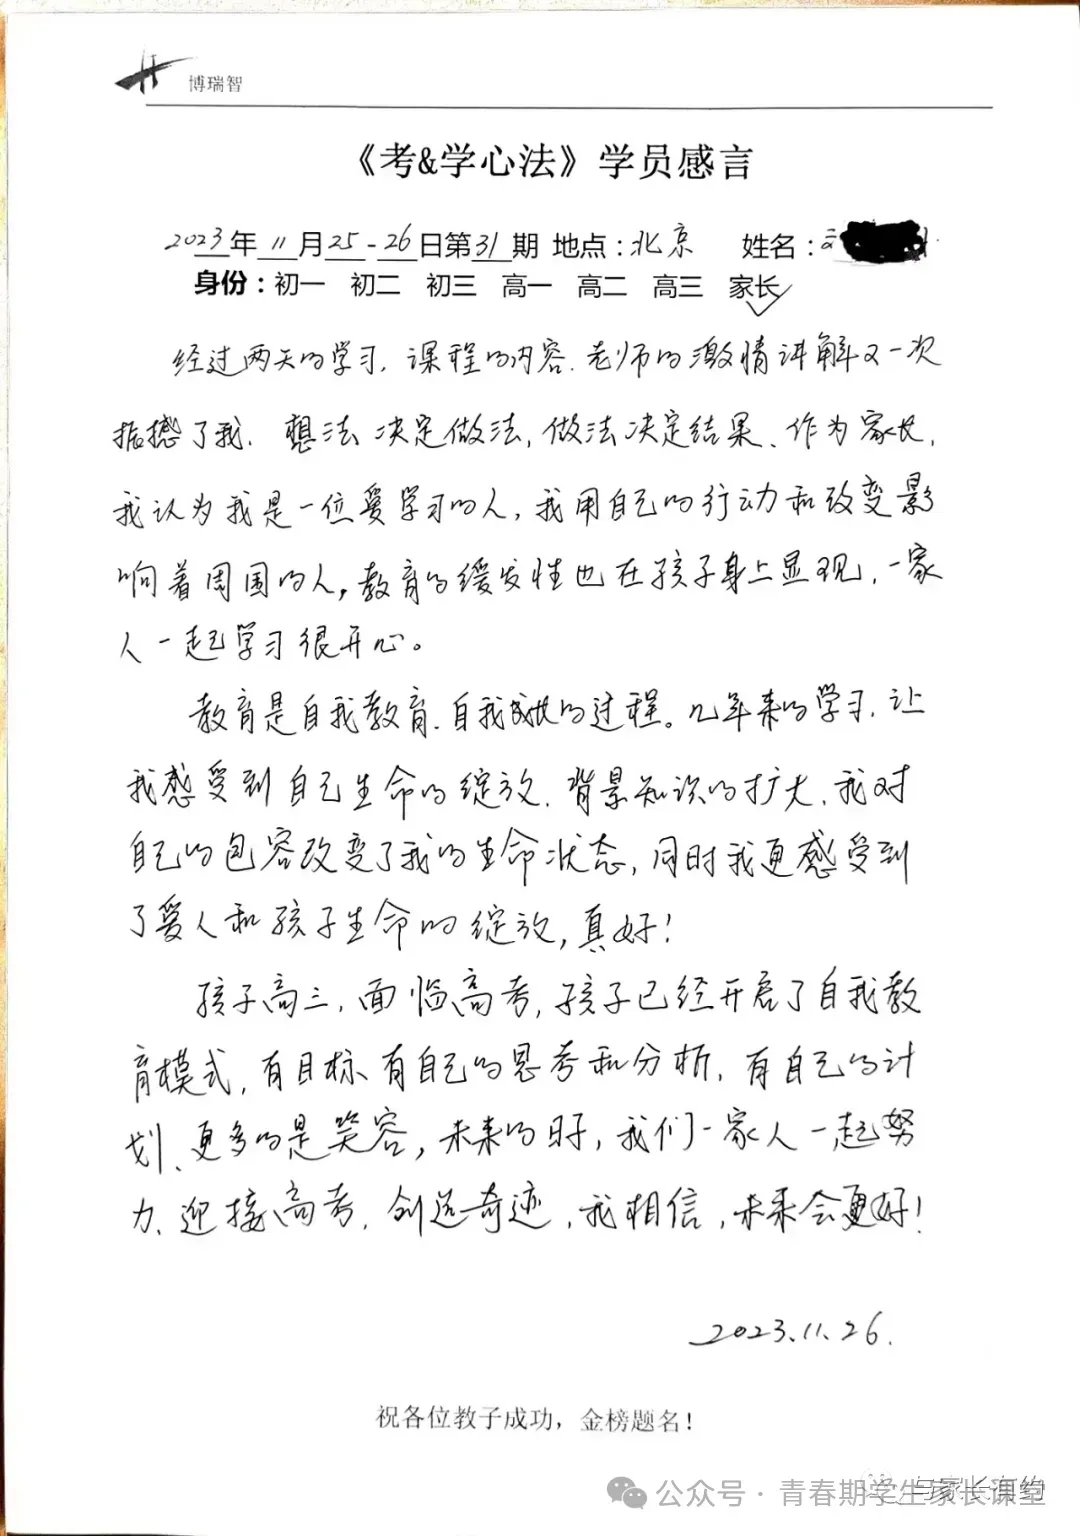 博瑞智
《考&学心法》学员感言
2023年11月25-26日第31期 地点：北京 姓名：
身份：初一 初二 初三 高一 高二 高三 家长✓
经过两天的学习，课程的内容、老师的激情讲解又一次
振撼了我。想法决定做法，做法决定结果、作为家长，
我认为我是一位爱学习的人，我用自己的行动和改变影
响着周围的人，教育的缓发性也在孩子身上显现，一家
人一起学习很开心。
教育是自我教育、自我成长的过程。几年来的学习，让
我感受到自己生命的绽放、背景知识的扩大、我对
自己的包容改变了我的生命状态，同时我更感受到
了爱人和孩子生命的绽放，真好！
孩子高三，面临高考，孩子已经开启了自我教
育模式，有目标、有自己的思考和分析，有自己的计
划、更多的是笑容，未来的日子，我们一家人一起努
力、迎接高考，创造奇迹，我相信，未来会更好！
2023.11.26.
祝各位教子成功，金榜题名！
公众号·青春期学生家长课堂
与家长有约